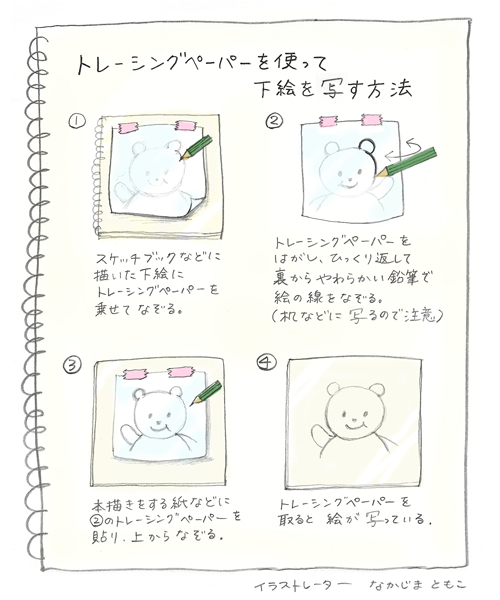 トレーシングペーパーを使って
下絵を写す方法
①
スケッチブックなどに
描いた下絵に
トレーシングペーパーを
乗せてなぞる。
②
トレーシングペーパーを
はがし、ひっくり返して
裏からやわらかい鉛筆で
絵の線をなぞる。
(机などに写るので注意)
③
本描きをする紙などに
②のトレーシングペーパーを
貼り、上からなぞる。
④
トレーシングペーパーを
取ると絵が写っている。
イラストレーター なかじまともこ